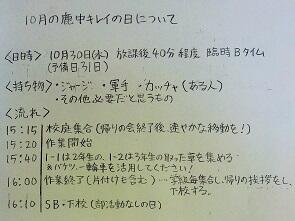 10月の鹿中キレイの日について
<日時> 10月30日(水) 放課後40分程度 臨時Bタイム
(予備日31日)
<持ち物>・ジャージ ・軍手 ・カッチャ(ある人)
・その他必要だと思うもの
<流れ>
15:15 校庭集合(帰りの会終了後、速やかな移動を!)
15:20 作業開始
15:40 1-1は2年生の、1-2は3年生の取った草を集める
※バケツ、一輪車を活用してください!
16:00 作業終了(片付けも含む)…学級毎集合し、帰りの挨拶をし、
下校する。
16:10 SB・下校(部活動なしの日)